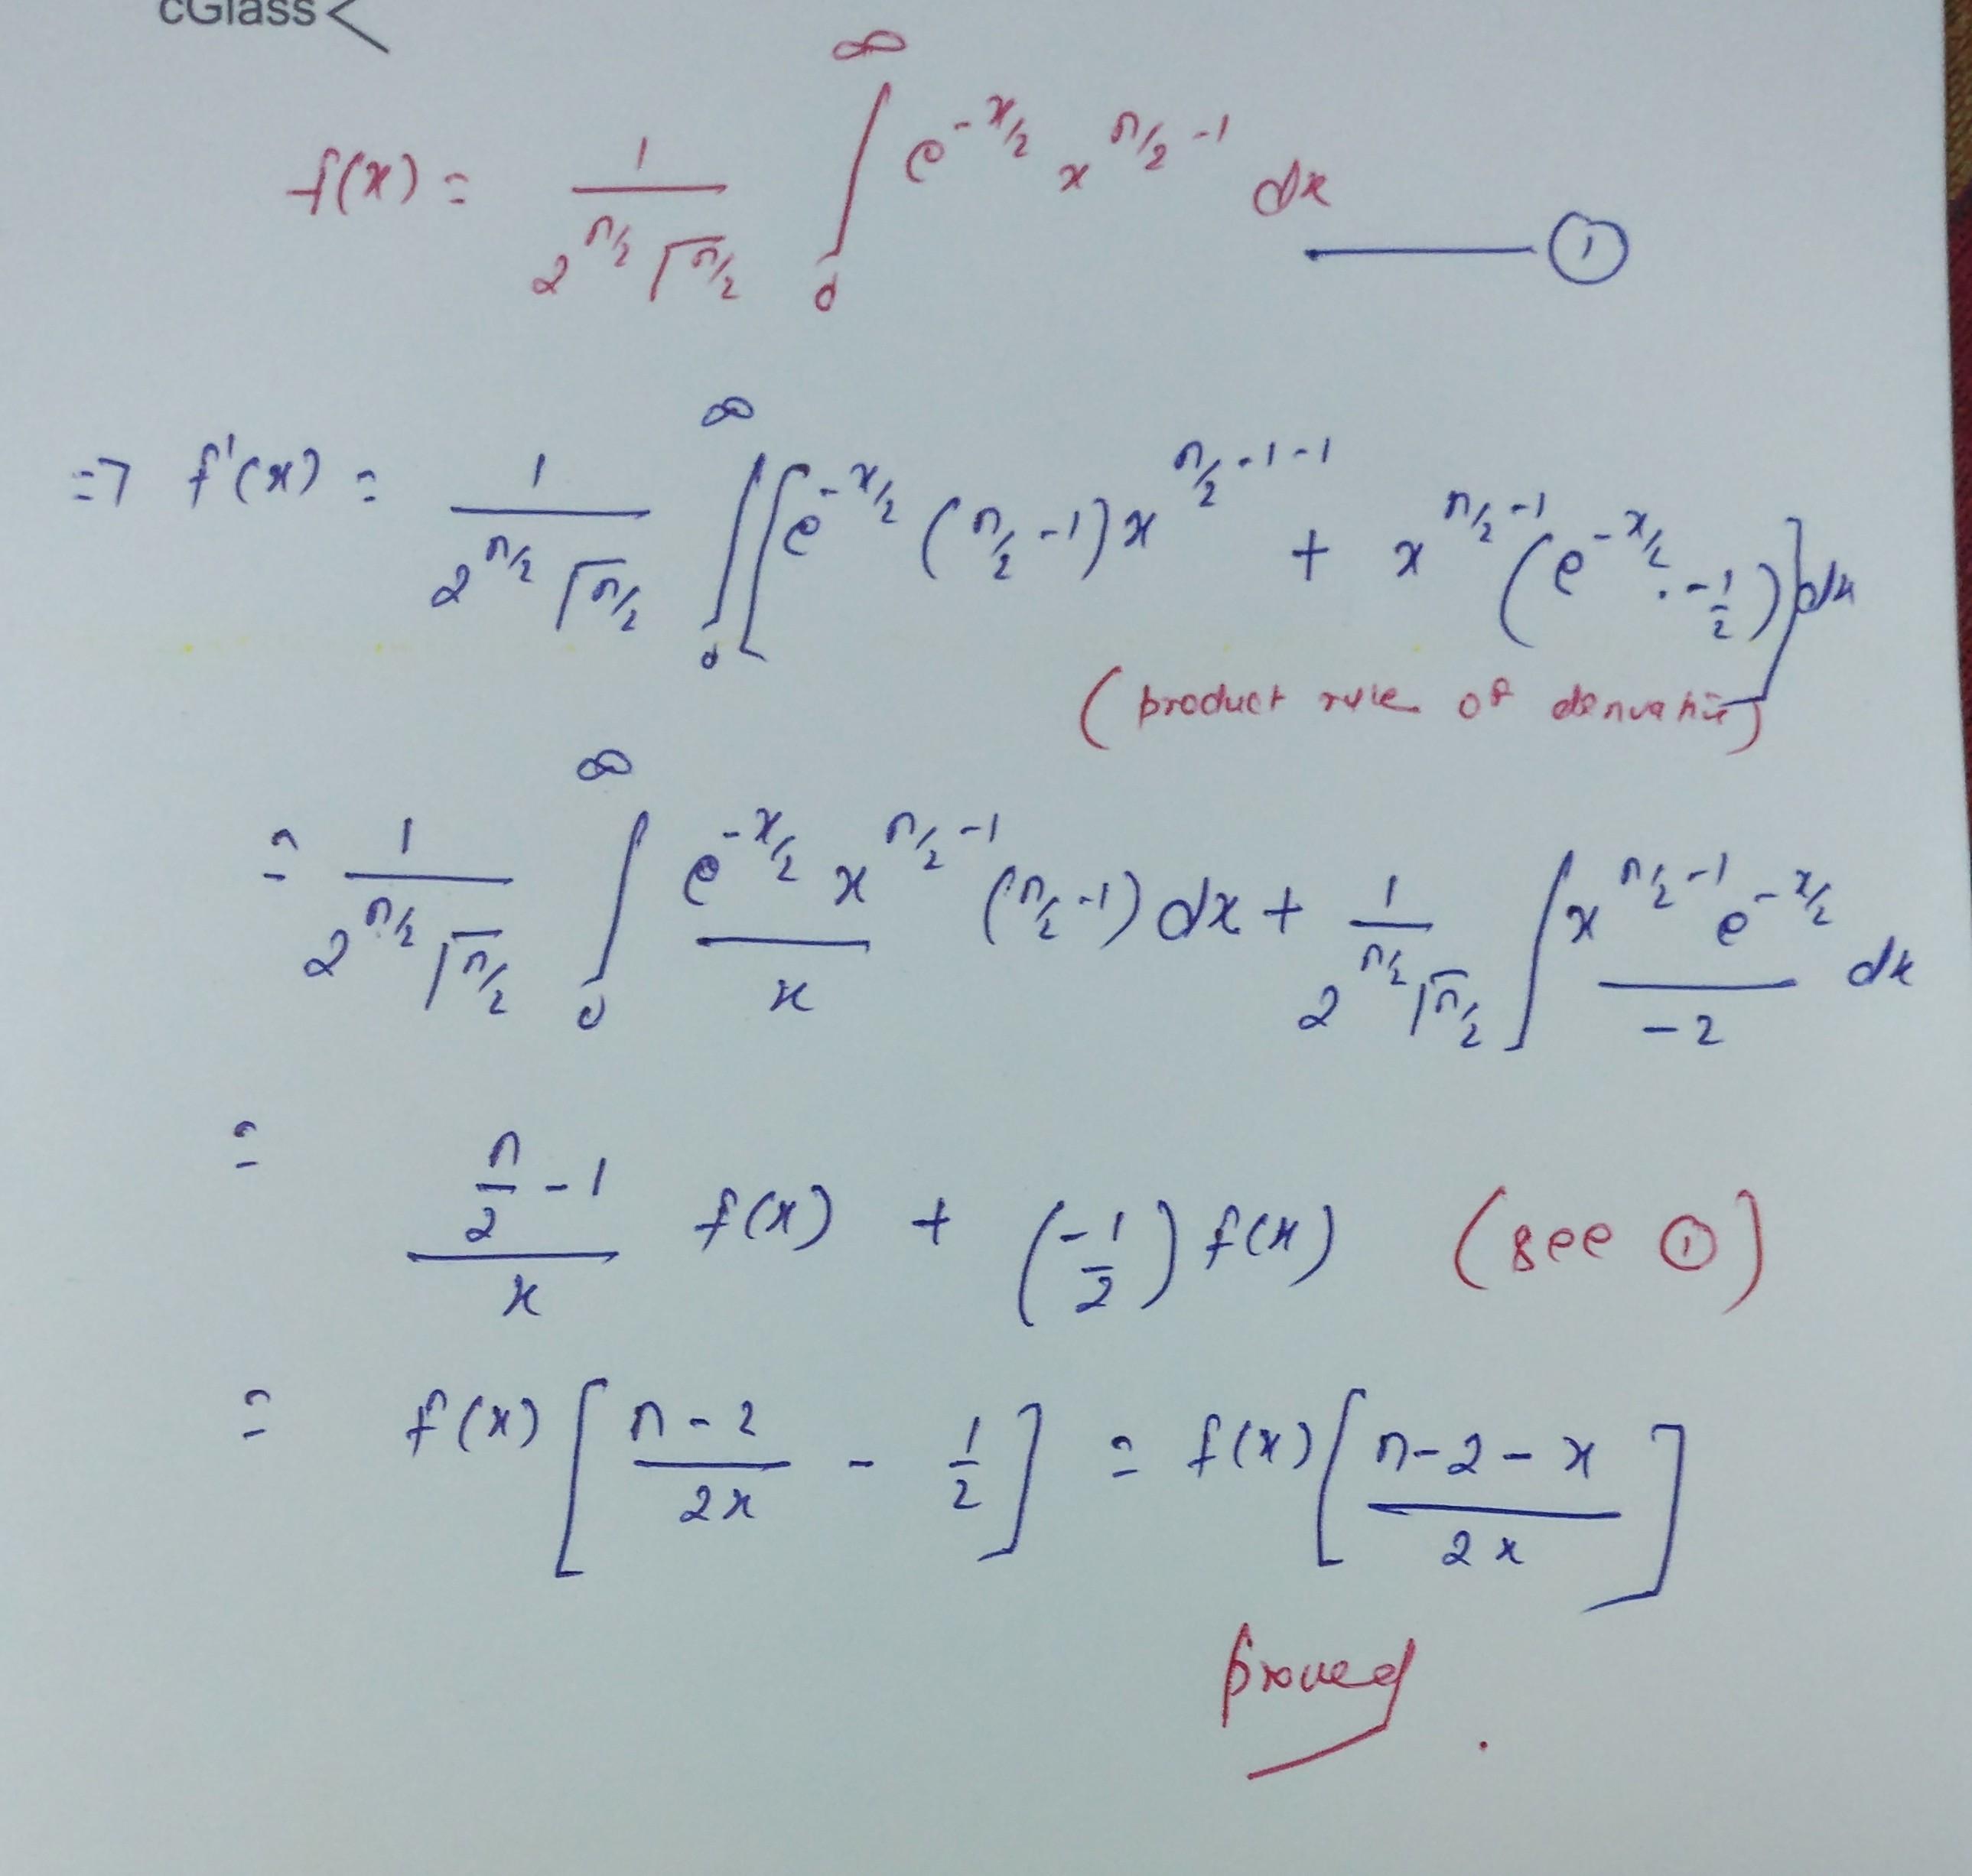 cGlass
f(x) = 1/(2^(n/2) Γ(n/2)) ∫_0^∞ e^(-x/2) x^(n/2 -1) dx —— ①
⇒ f'(x) = 1/(2^(n/2) Γ(n/2)) ∫_0^∞ [e^(-x/2) (n/2 -1) x^(n/2 -1-1) + x^(n/2 -1) (e^(-x/2) · -1/2)] dx
(product rule of derivative)
= 1/(2^(n/2) Γ(n/2)) ∫_0^∞ (e^(-x/2) x^(n/2 -1))/x (n/2 -1) dx + 1/(2^(n/2) Γ(n/2)) ∫ (x^(n/2 -1) e^(-x/2))/(-2) dx
= (n/2 - 1)/x f(x) + (-1/2) f(x) (see ①)
= f(x) [(n-2)/(2x) - 1/2] = f(x) [(n-2-x)/(2x)]
proved.